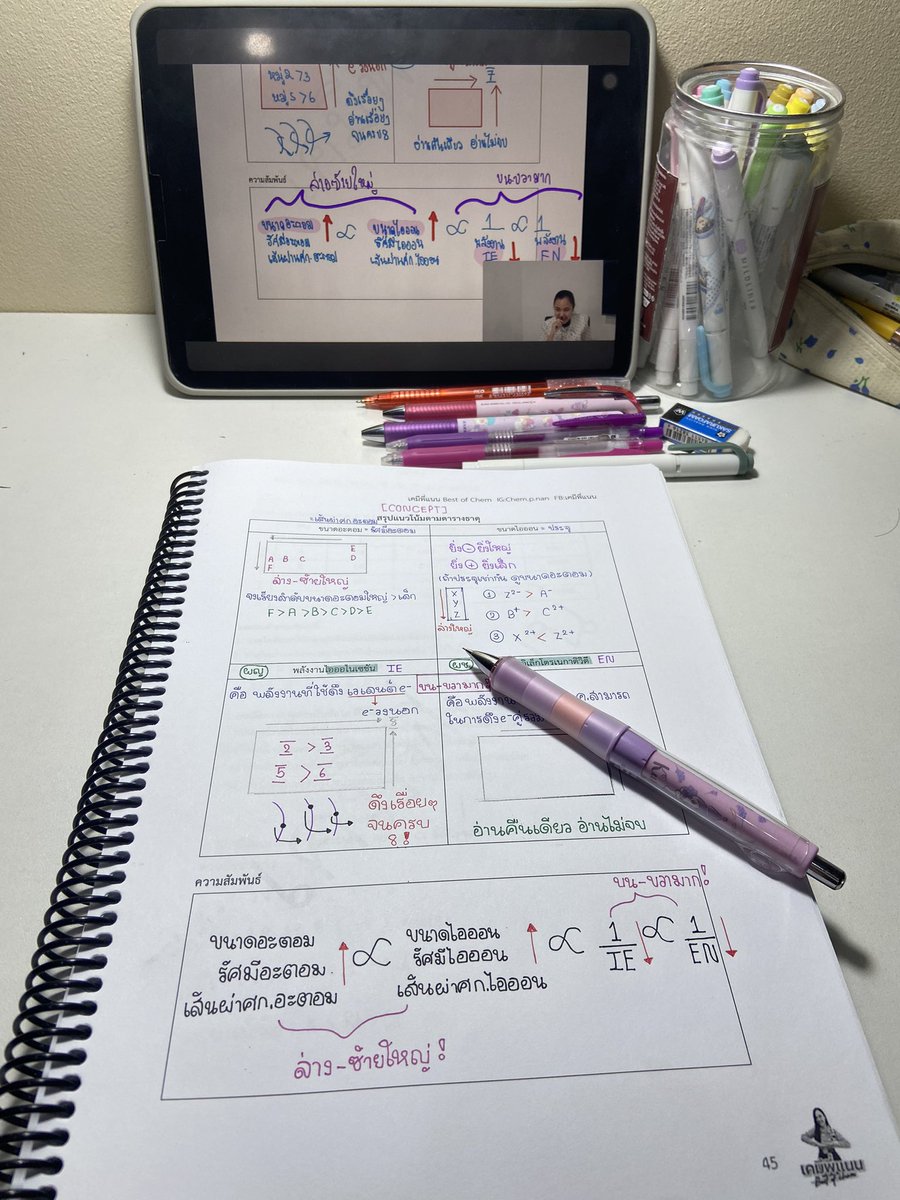 หมู่ 2 > 3
หมู่ 5 > 6
ดึงเรื่อยๆ
อ่านเรื่อยๆ
จนครบ 8
อ่านคืนเดียว อ่านไม่จบ
ความสัมพันธ์
ล่างซ้ายใหญ่
บน-ขวามาก
ขนาดอะตอม ↑ ∝ ขนาดไอออน ↑ ∝ 1 ∝ 1
รัศมีอะตอม รัศมีไอออน พลังงาน พลังงาน
เส้นผ่านศก.อะตอม เส้นผ่านศก.ไอออน IE ↓ EN ↓
เคมีพี่แนน Best of Chem IG:Chem.p.nan FB:เคมีพี่แนน
[CONCEPT]
สรุปแนวโน้มตามตารางธาตุ
= เส้นผ่าศก.อะตอม
ขนาดอะตอม = รัศมีอะตอม
E
A B C D
F
ล่าง-ซ้ายใหญ่
จงเรียงลำดับขนาดอะตอมใหญ่ > เล็ก
F > A > B > C > D > E
ขนาดไอออน = ประจุ
ยิ่ง ⊖ ยิ่งใหญ่
ยิ่ง ⊕ ยิ่งเล็ก
(ถ้าประจุเท่ากัน ดูขนาดอะตอม)
X
Y
Z
ล่างใหญ่
① Z²⁻ > A⁻
② B⁺ > C²⁺
③ X²⁺ < Z²⁺
ผญ พลังงานไอออไนเซชัน IE
คือ พลังงานที่ใช้ดึง เวเลนต์ e-
e- วงนอก
2 > 3
5 > 6
ดึงเรื่อยๆ
จนครบ
8!
ผช อิเล็กโตรเนกาติวิตี EN
บน-ขวามาก
คือ สามารถ
ในการดึง e- คู่
อ่านคืนเดียว อ่านไม่จบ
ความสัมพันธ์
บน-ขวามาก!
ขนาดอะตอม ↑ ∝ ขนาดไอออน ↑ ∝ 1 ↓ ∝ 1 ↓
รัศมีอะตอม รัศมีไอออน IE EN
เส้นผ่าศก.อะตอม เส้นผ่าศก.ไอออน
ล่าง-ซ้ายใหญ่!
45
เคมีพี่แนน